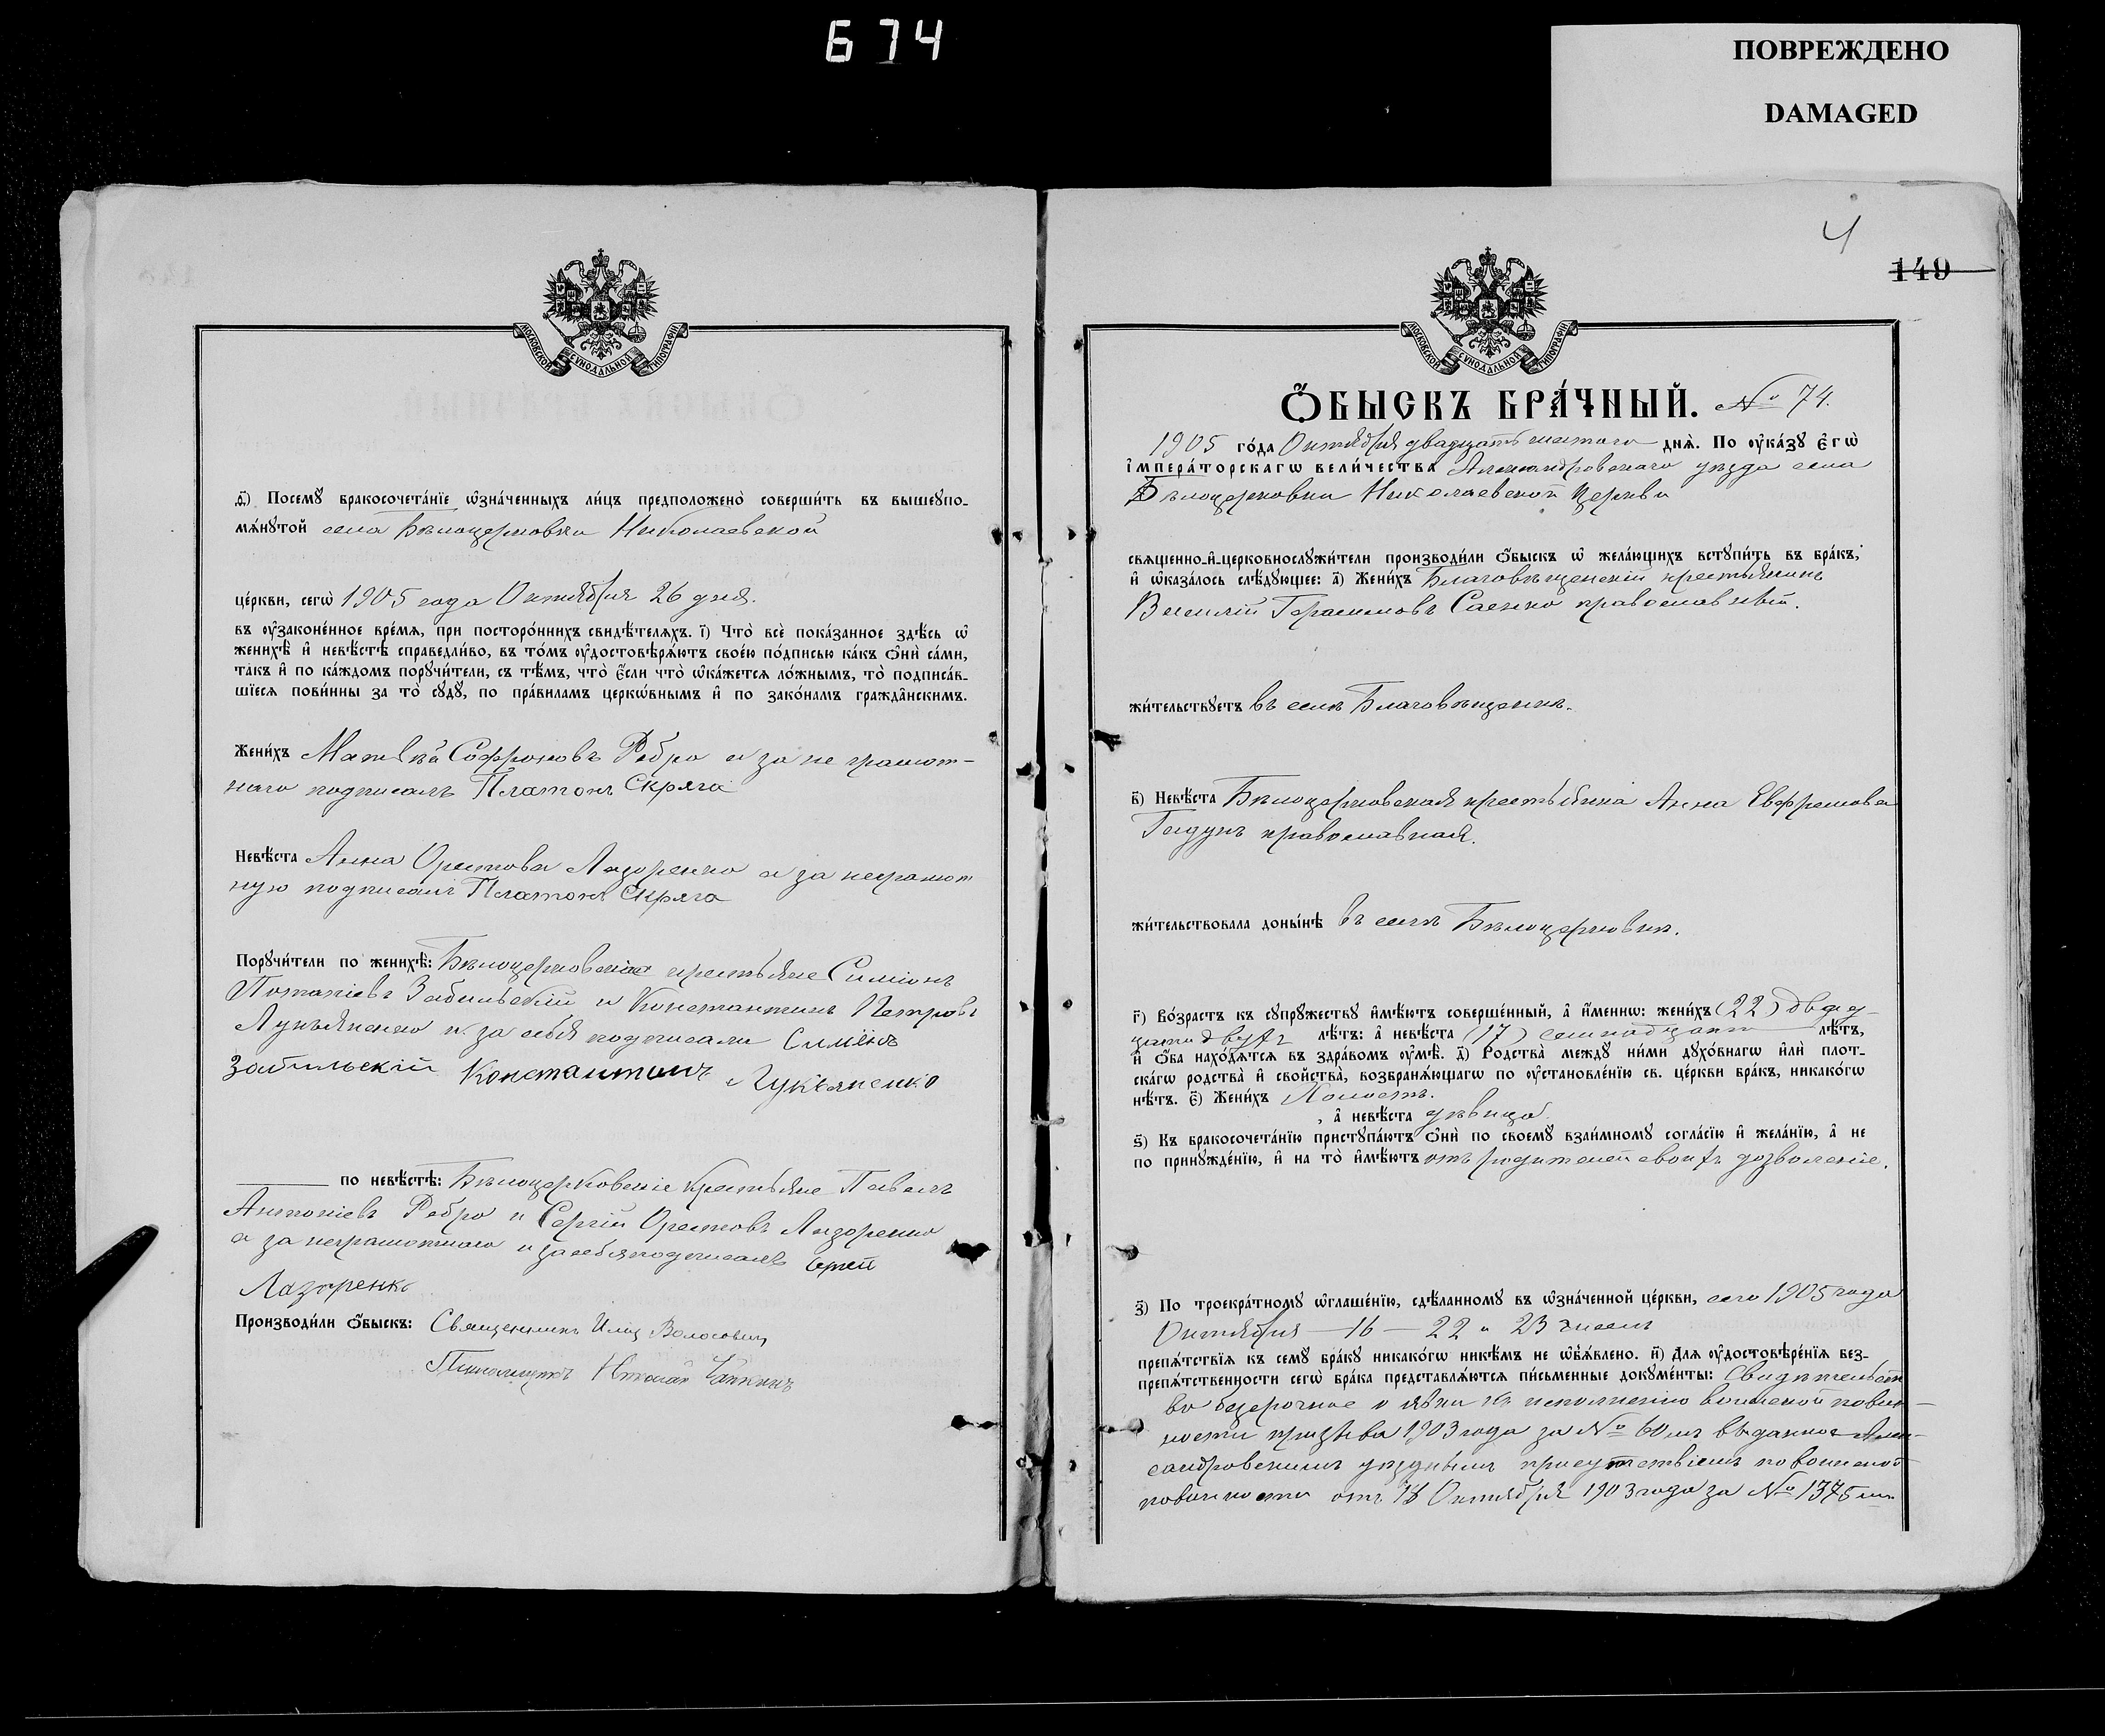 674
ПОВРЕЖДЕНО
DAMAGED
МОСКОВСКОЙ СѴНОДАЛЬНОЙ ТИПОГРАФІИ
ѳ҃) Посемꙋ бракосочета́нїе ѡ҆зна́ченныхъ ли́цъ предположено̀ соверши́ть въ вышеꙋпо-
мѧ́нꙋтой села Бѣлоцерковки Николаевской
це́ркви, сегѡ̀ 1905 года Октября 26 дня.
въ ᲂу҆законе́нное вре́мѧ, при посторо́ннихъ свидѣ́телѧхъ. і҃) Что̀ всѐ пока́занное здѣ́сь ѡ҆
женихѣ̀ и҆ невѣ́стѣ справедли́во, въ то́мъ ᲂу҆достовѣрѧ́ютъ свое́ю по́дписью ка́къ ѻ҆нѝ са́ми,
та́къ и҆ по ка́ждомъ порꙋчи́тели, съ тѣ́мъ, что̀ є҆́сли что̀ ѡ҆ка́жетсѧ ло́жнымъ, то̀ подписа́в-
шїесѧ пови́нны за то̀ сꙋдꙋ̀, по пра́виламъ церкѡ́внымъ и҆ по зако́намъ гражда̑нскимъ.
Жени́хъ Матвѣй Софроновъ Ребро а за не грамот-
наго подписалъ Платонъ Скряга
Невѣ́ста Анна Орестова Лазоренко а за неграмот
ную подписалъ Платонъ Скряга
Порꙋчи́тели по женихѣ̀: Бѣлоцерковскіе крестьяне Симіонъ
Потапіевъ Забильскій и Константинъ Петровъ
Лукьяненко и за себя подписали Симіонъ
Забильскій Константинъ Лукьяненко
по невѣ́стѣ: Бѣлоцерковскіе крестьяне Павелъ
Антоніевъ Ребро и Сергій Орестовъ Лазоренко
а за неграмотнаго и за себя подписалъ Сергей
Лазоренко
Производи́ли ѻ҆́быскъ: Священникъ Илія Волосовичъ
Псаломщикъ Николай
4
149
МОСКОВСКОЙ СѴНОДАЛЬНОЙ ТИПОГРАФІИ
Ѻ҆́БЫСКЪ БРА́ЧНЫЙ. № 74.
1905 го́да Октября двадцать шестого днѧ̀. По ᲂу҆ка́зꙋ є҆гѡ̀
і҆мпера́торскагѡ вели́чества Александровскаго уѣзда села
Бѣлоцерковки Николаевской церкви
свѧще́нно-и҆-церковнослꙋжи́тели производи́ли ѻ҆́быскъ ѡ҆ жела́ющихъ встꙋпи́ть въ бра́къ,
и҆ ѡ҆каза́лось слѣ́дꙋющее: а҃) Жени́хъ Благовѣщенскій крестьянинъ
Василій Герасимовъ Саенко православный.
жи́тельствꙋетъ въ селѣ Благовѣщенкѣ.
в҃) Невѣ́ста Бѣлоцерковская крестьянка Анна Евфремова
Гайдукъ православная.
жи́тельствовала доны́нѣ въ селѣ Бѣлоцерковкѣ.
г҃) Во́зрастъ къ сꙋпрꙋ́жествꙋ и҆мѣ́ютъ соверше́нный, а҆ и҆́менно: жени́хъ (22) двад-
цати двухъ лѣ́тъ: а҆ невѣ́ста (17) семнадцати лѣ́тъ,
и҆ ѻ҆́ба нахо́дѧтсѧ въ здра́вомъ ᲂу҆мѣ̀. д҃) Родства̀ междꙋ̀ ни́ми дꙋхо́внагѡ и҆лѝ плот-
ска́гѡ родства̀ и҆ сво́йства, возбранѧ́ющагѡ по ᲂу҆становле́нїю св. це́ркви бра́къ, никако́гѡ
нѣ́тъ. є҃) Жени́хъ Холостъ.
, а҆ невѣ́ста дѣвица
ѕ҃) Къ бракосочета́нїю пристꙋпа́ютъ ѻ҆нѝ по своемꙋ̀ взаи́мномꙋ согла́сїю и҆ жела́нїю, а҆ не
по принꙋжде́нїю, и҆ на то̀ и҆мѣ́ютъ отъ родителей своихъ дозволеніе.
з҃) По троекра́тномꙋ ѡ҆глаше́нїю, сдѣ́ланномꙋ въ ѡ҆зна́ченной це́ркви, сего 1905 года
Октября —16— 22 и 23 чиселъ
препѧ́тствїѧ къ семꙋ̀ бра́кꙋ никако́гѡ никѣ́мъ не ѡ҆б̾ѧ́влено. и҃) Длѧ ᲂу҆достовѣре́нїѧ без-
препѧ́тственности сегѡ̀ бра́ка представлѧ́ютсѧ пи́сьменные докꙋме́нты: Свидѣтельст
во безсрочное о явкѣ къ исполненію воинской повин-
ности призыва 1903 года за № 60мъ выданное Алек-
сандровскимъ уѣзднымъ присутствіемъ по воинской
повинности отъ 18 Октября 1903 года за № 1375мъ